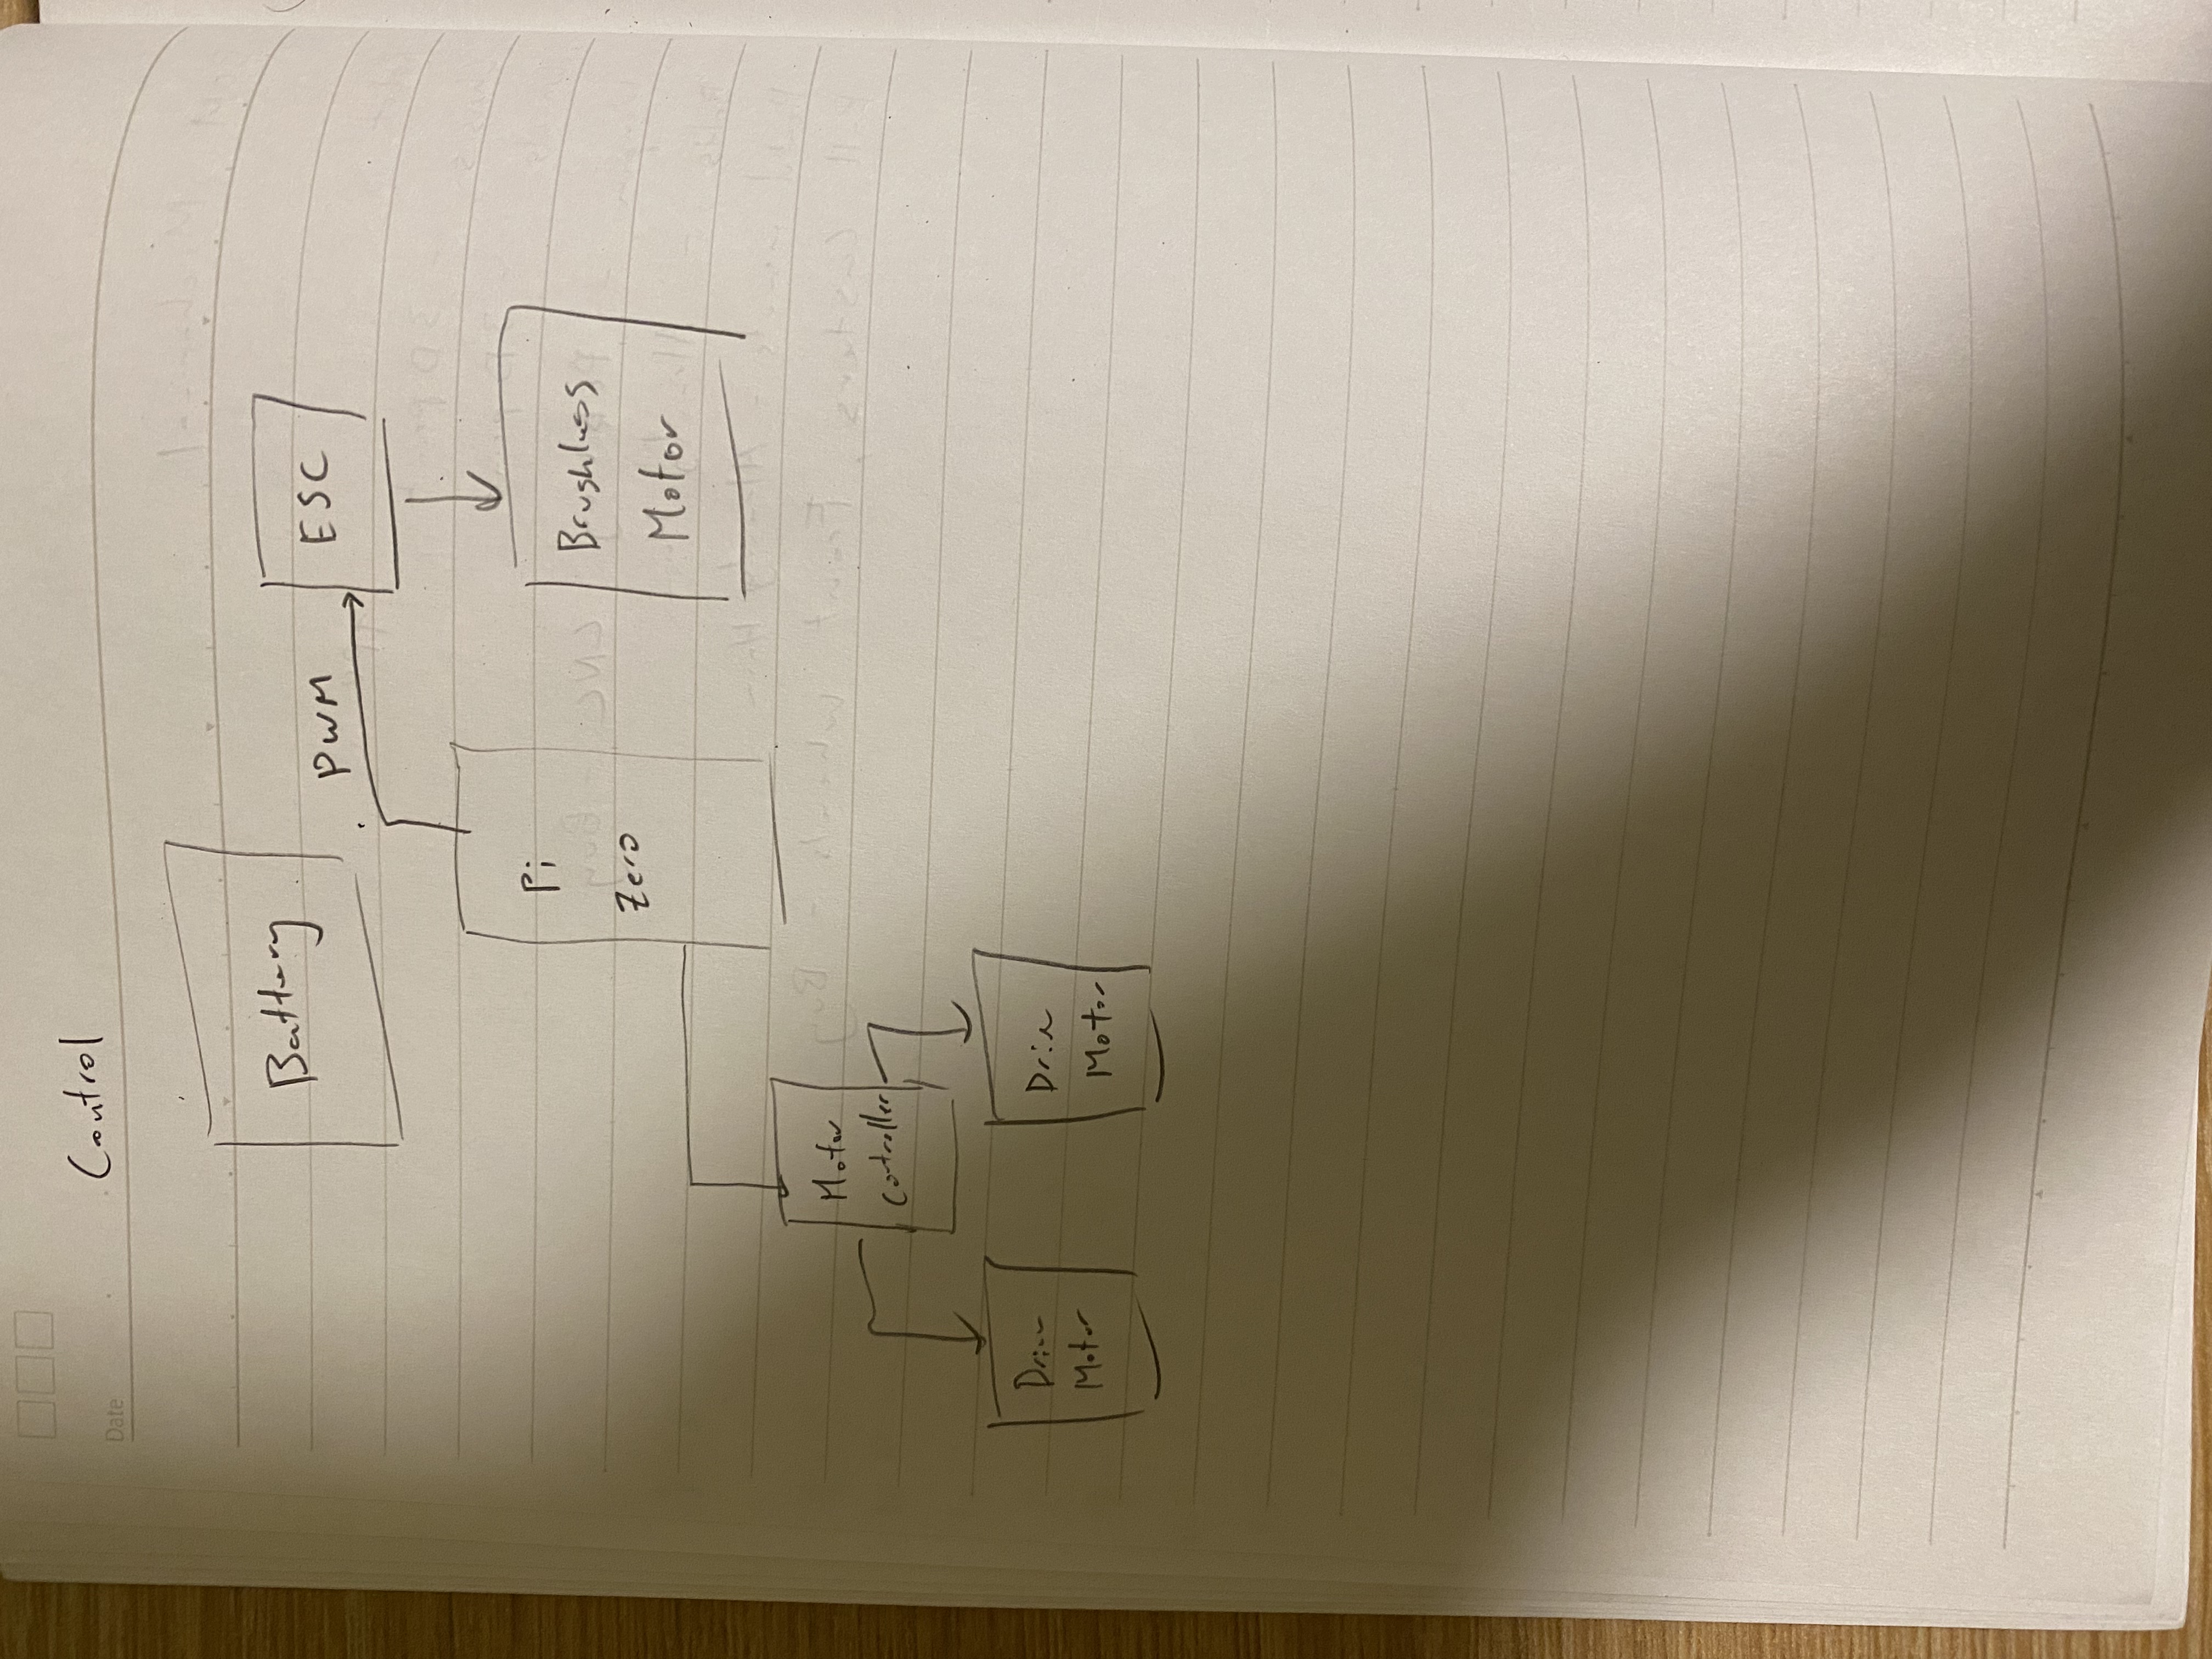 Date
Control
Battery
PWM
ESC
Pi
Zero
Brushless
Motor
Motor
Controller
Drive
Motor
Drive
Motor